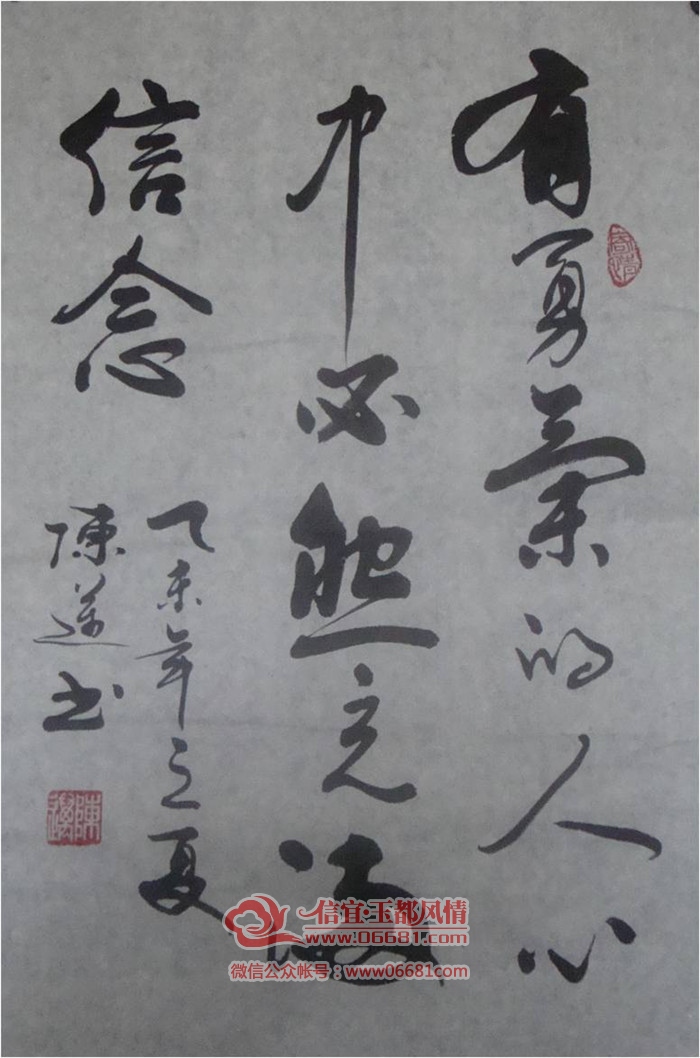 有勇氣的人心
中必然充滿
信念
乙未年之夏
陳邁书
信宜·玉都风情
www.06681.com
微信公众帐号：www06681com